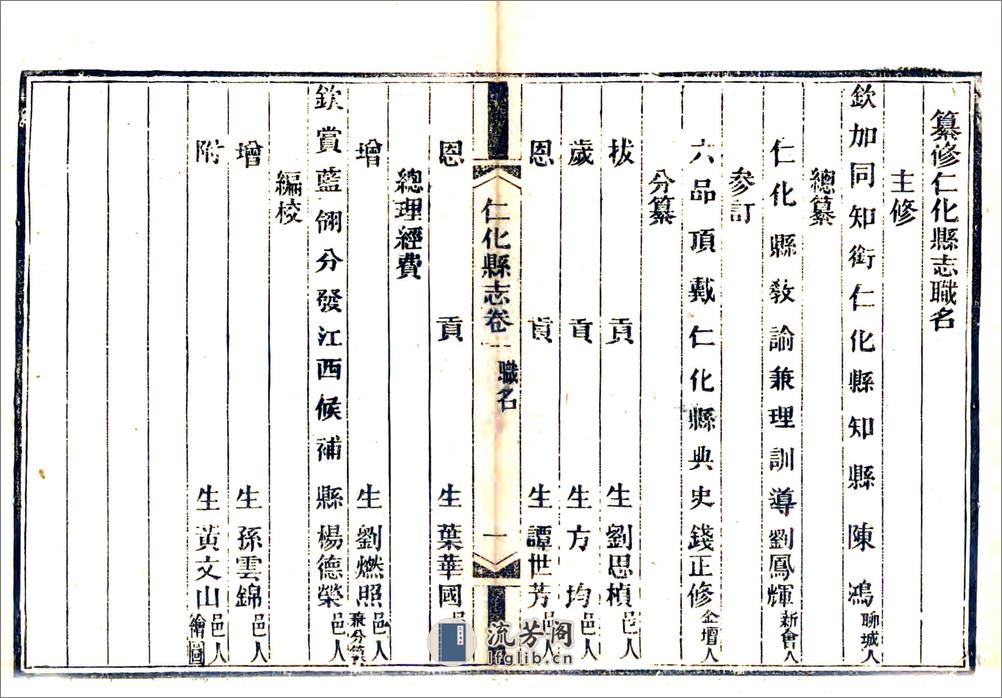 纂修仁化縣志職名
主修
欽加同知銜仁化縣知縣陳鴻聊城人
總纂
仁化縣教諭兼理訓導劉鳳輝新會人
參訂
六品頂戴仁化縣典史錢正修金壇人
分纂
拔貢生劉思楨邑人
歲貢生方均邑人
恩貢生譚世芳邑人
仁化縣志卷一 職名 一
恩貢生葉華國邑
總理經費
增生劉燃照邑人兼分纂
欽賞藍翎分發江西候補縣楊德榮邑人
編校
增生孫雲錦邑人
附生黃文山邑人繪圖
流芳閣
lfglib.cn